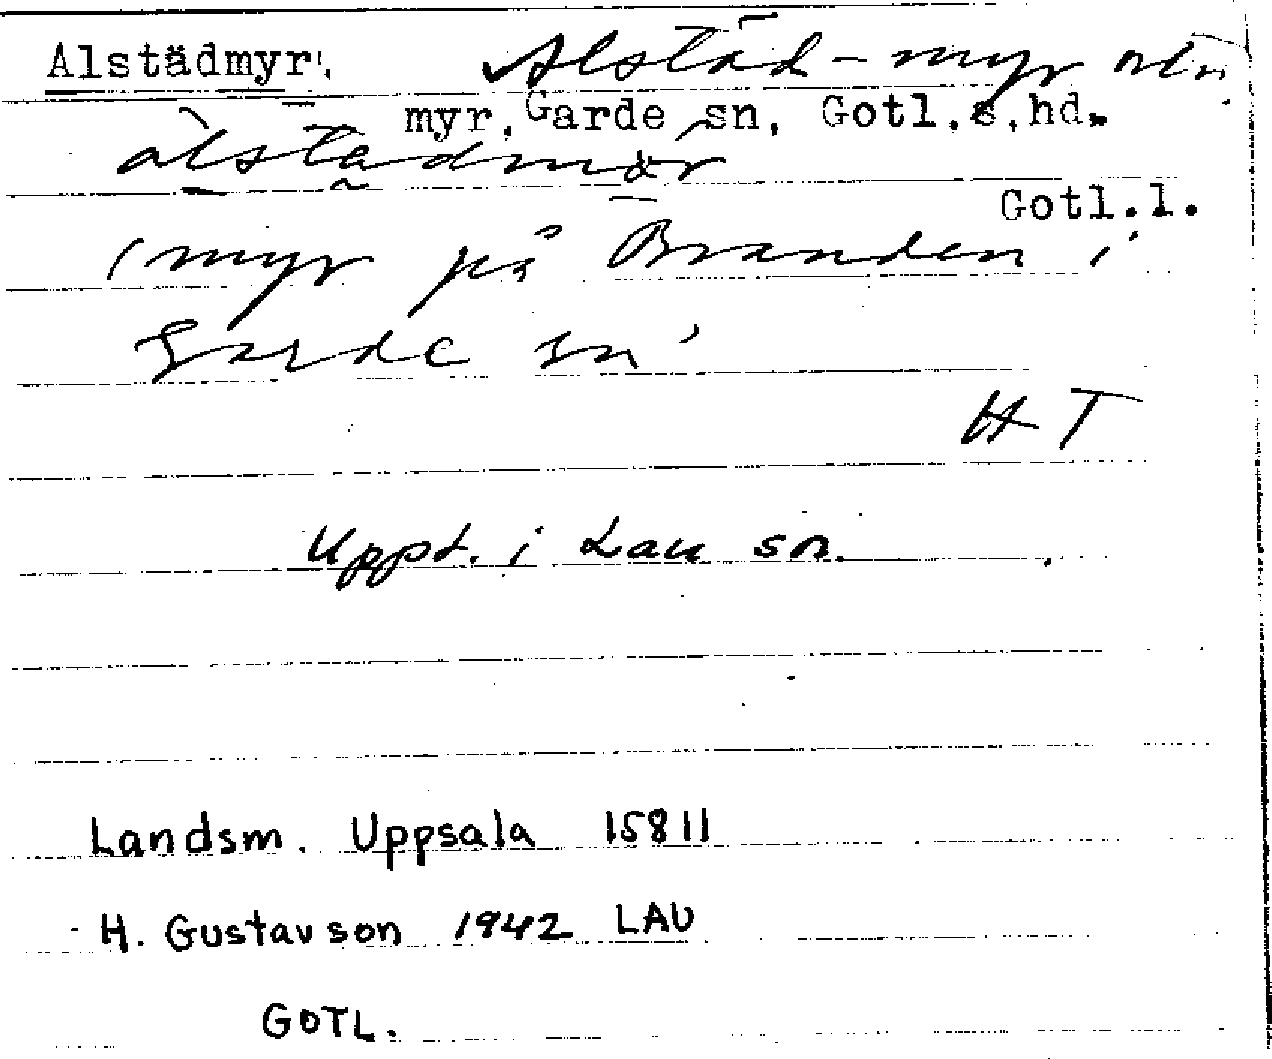 Alstädmyr.
Alstäd-myr oln
myr, Garde sn, Gotl.s.hd.
alstädmör
Gotl.l.
'myr på Branden i
Garde sn'
HT
Uppt. i Lau sn.
Landsm. Uppsala 15811
H. Gustavson 1942 LAU
GOTL.